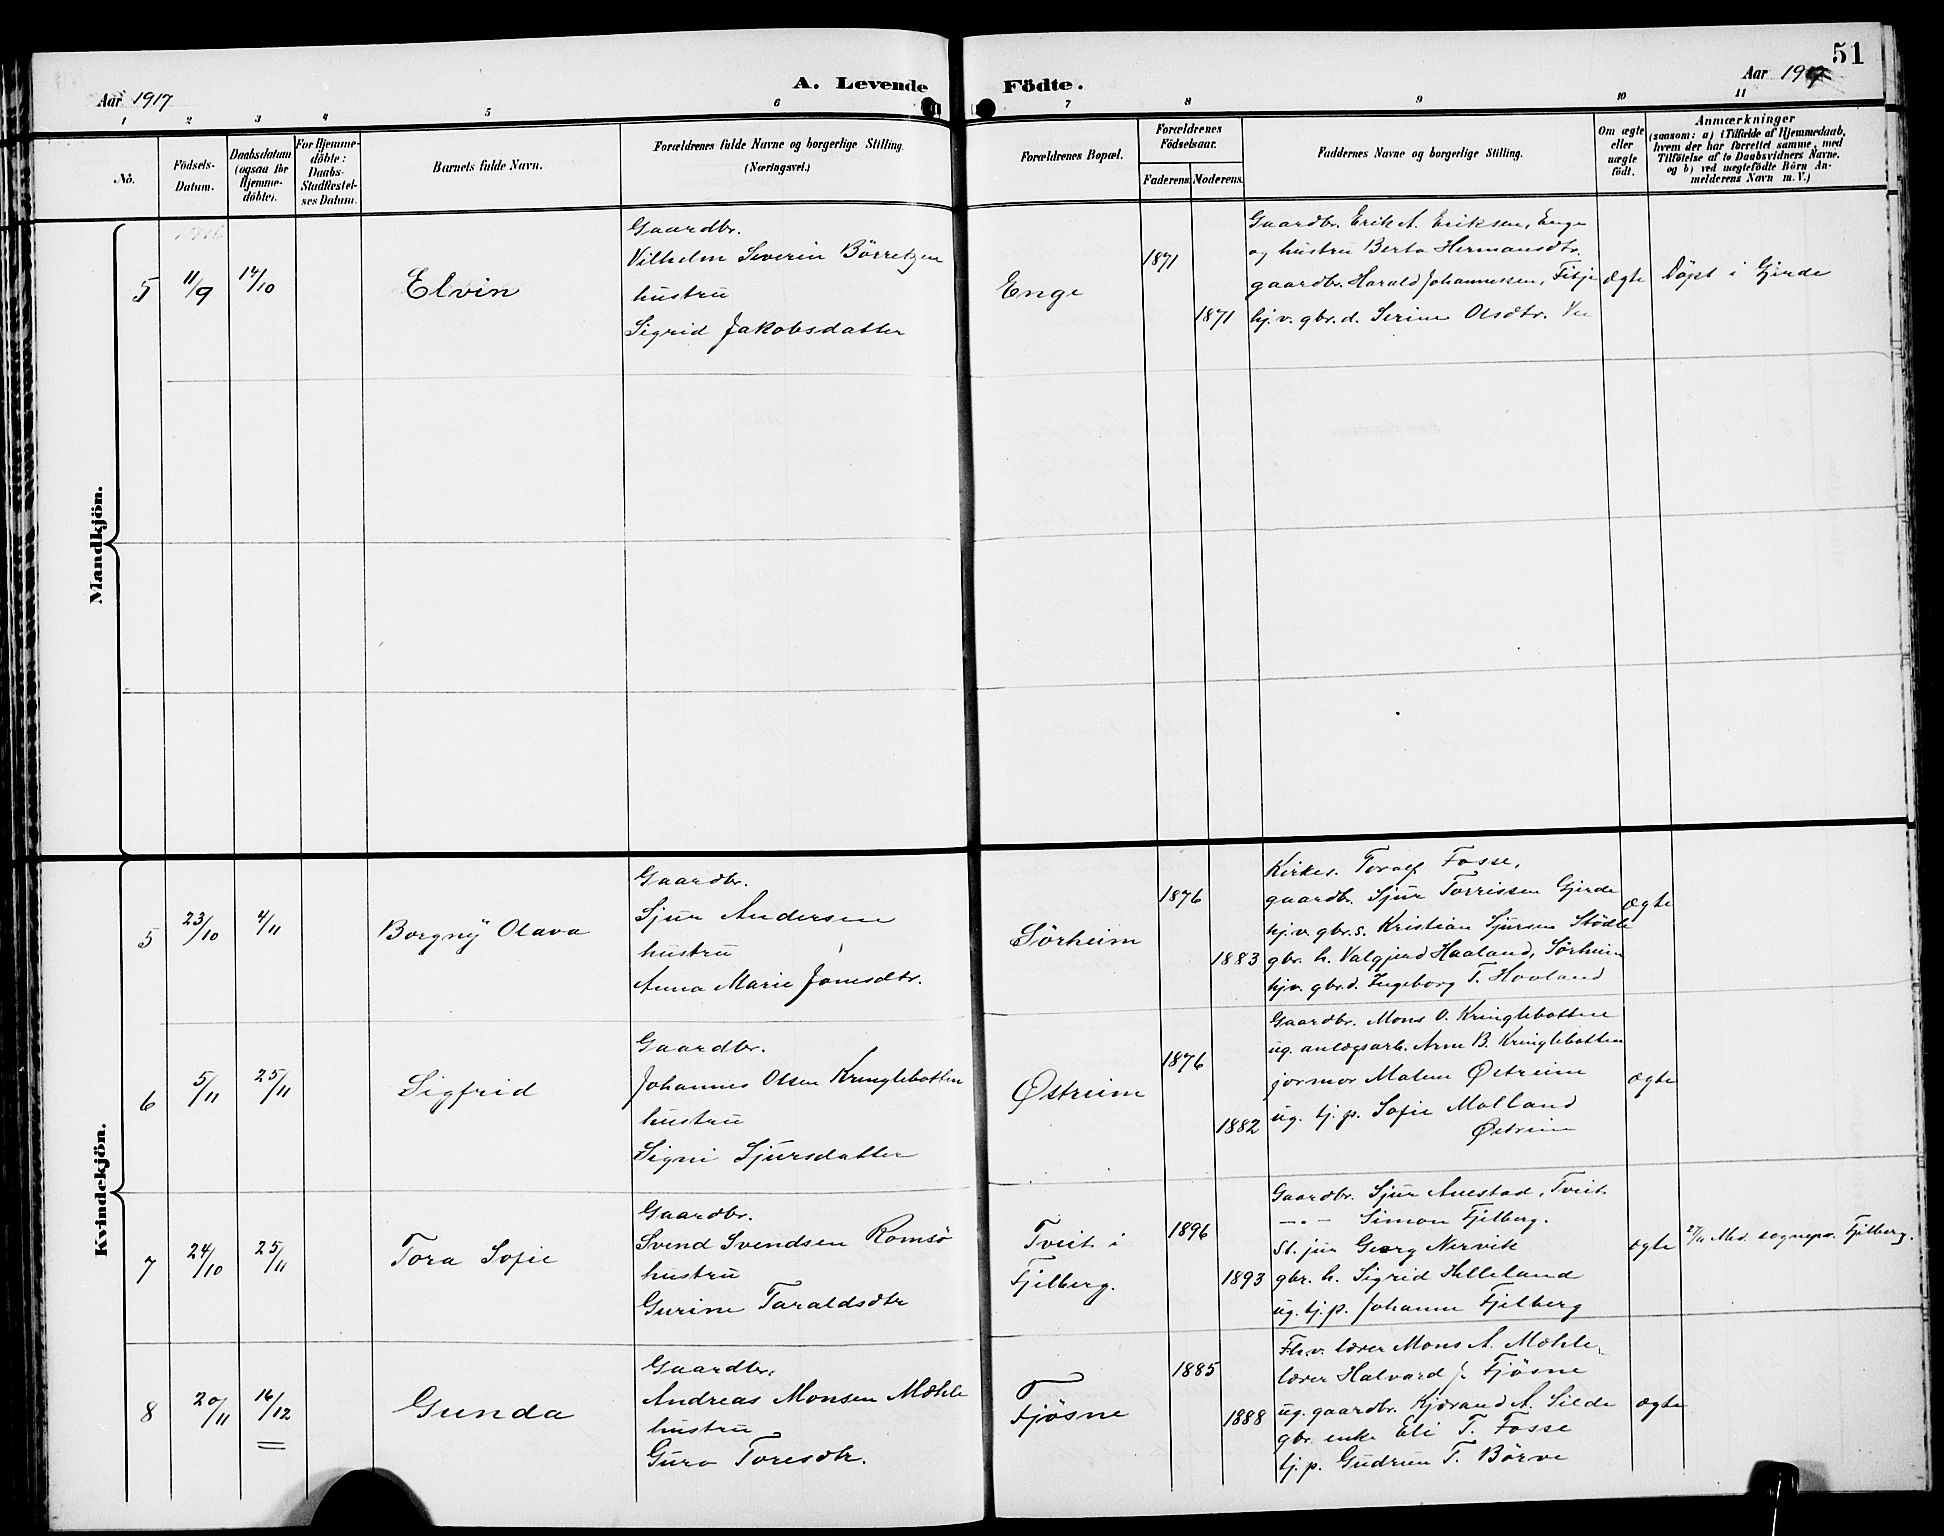 51
Aar 1917
A. Levende Födte.
Aar 1917
1 2 3 4 5 6 7 8 9 10 11
No.
Födsels-Datum.
Daabsdatum (ogsaa for Hjemme-döbte).
For Hjemme-döbte: Daabs-Stadfæstel-ses Datum.
Barnets fulde Navn.
Forældrenes fulde Navne og borgerlige Stilling.
(Næringsvei.)
Forældrenes Bopæl.
Forældrenes Födselsaar.
Faderens. Moderens.
Faddernes Navne og borgerlige Stilling.
Om ægte eller uægte födt.
Anmærkninger
(saasom: a) i Tilfælde af Hjemmedaab,
hvem der har forrettet samme, med
Tilföielse af to Daabsvidners Navne,
og b) ved uægtefödte Börn An-
melderens Navn m. V.)
Mandkjön.
5 11/9 14/10
Elvin
Gaardbr.
Vilhelm Severin Börretzen
hustru
Sigrid Jakobsdatter
Enge
1871
1871
Gaardbr. Erik A. Eriksen, Enge
og hustru Berta Hermansdtr.
gaardbr. Harald Johannessen, Fitje
hj.v. gbr.d. Serine Olsdtr. Vee
ægte
Döpt i Gjerde
Kvindekjön.
5 23/10 4/11
Borgny Olava
Gaardbr.
Sjur Andersen
hustru
Anna Marie Jonsdtr.
Sörheim
1876
1883
Kirkes. Toralf Fosse,
gaardbr. Sjur Torrissen Gjerde
hj.v. gbr.s. Kristian Sjursen Stödle
gbr. h. Valgjerd Haaland, Sörheim
hjv. gbr.d. Ingeborg T. Hovland
ægte
6 5/11 25/11
Sigfrid
Gaardbr.
Johannes Olsen Kringlebotten
hustru
Signi Sjursdatter
Østreim
1876
1882
Gaardbr. Mons O. Kringlebotten
ug. anlægsarb. Arne B. Kringlebotten
jormor Malene Østreim
ug. tj.p. Sofie Molland
Østreim
ægte
7 24/10 25/11
Tora Sofie
Gaardbr.
Svend Svendsen Romsö
hustru
Gurine Taraldsdtr
Tveit i
Fjelberg.
1896
1893
Gaardbr. Sjur Auestad, Tveit.
-"- Simon Fjelberg.
St. jur Georg Nervik
gbr. h. Sigrid Helleland
ug. tj.p. Johanne Fjelberg
ægte
27/11 Med. sognepr. Fjelberg.
8 20/11 16/12
Gunda
Gaardbr.
Andreas Monsen Mæhle
hustru
Guro Toresdtr.
Fjösne
1885
1888
Fh.v. lærer Mons A. Mæhle,
lærer Halvard J. Fjösne
ug. gaardbr. Kjærand A. Silde
gbr. enke Eli T. Fosse
tj.p. Gudrun T. Börve
ægte